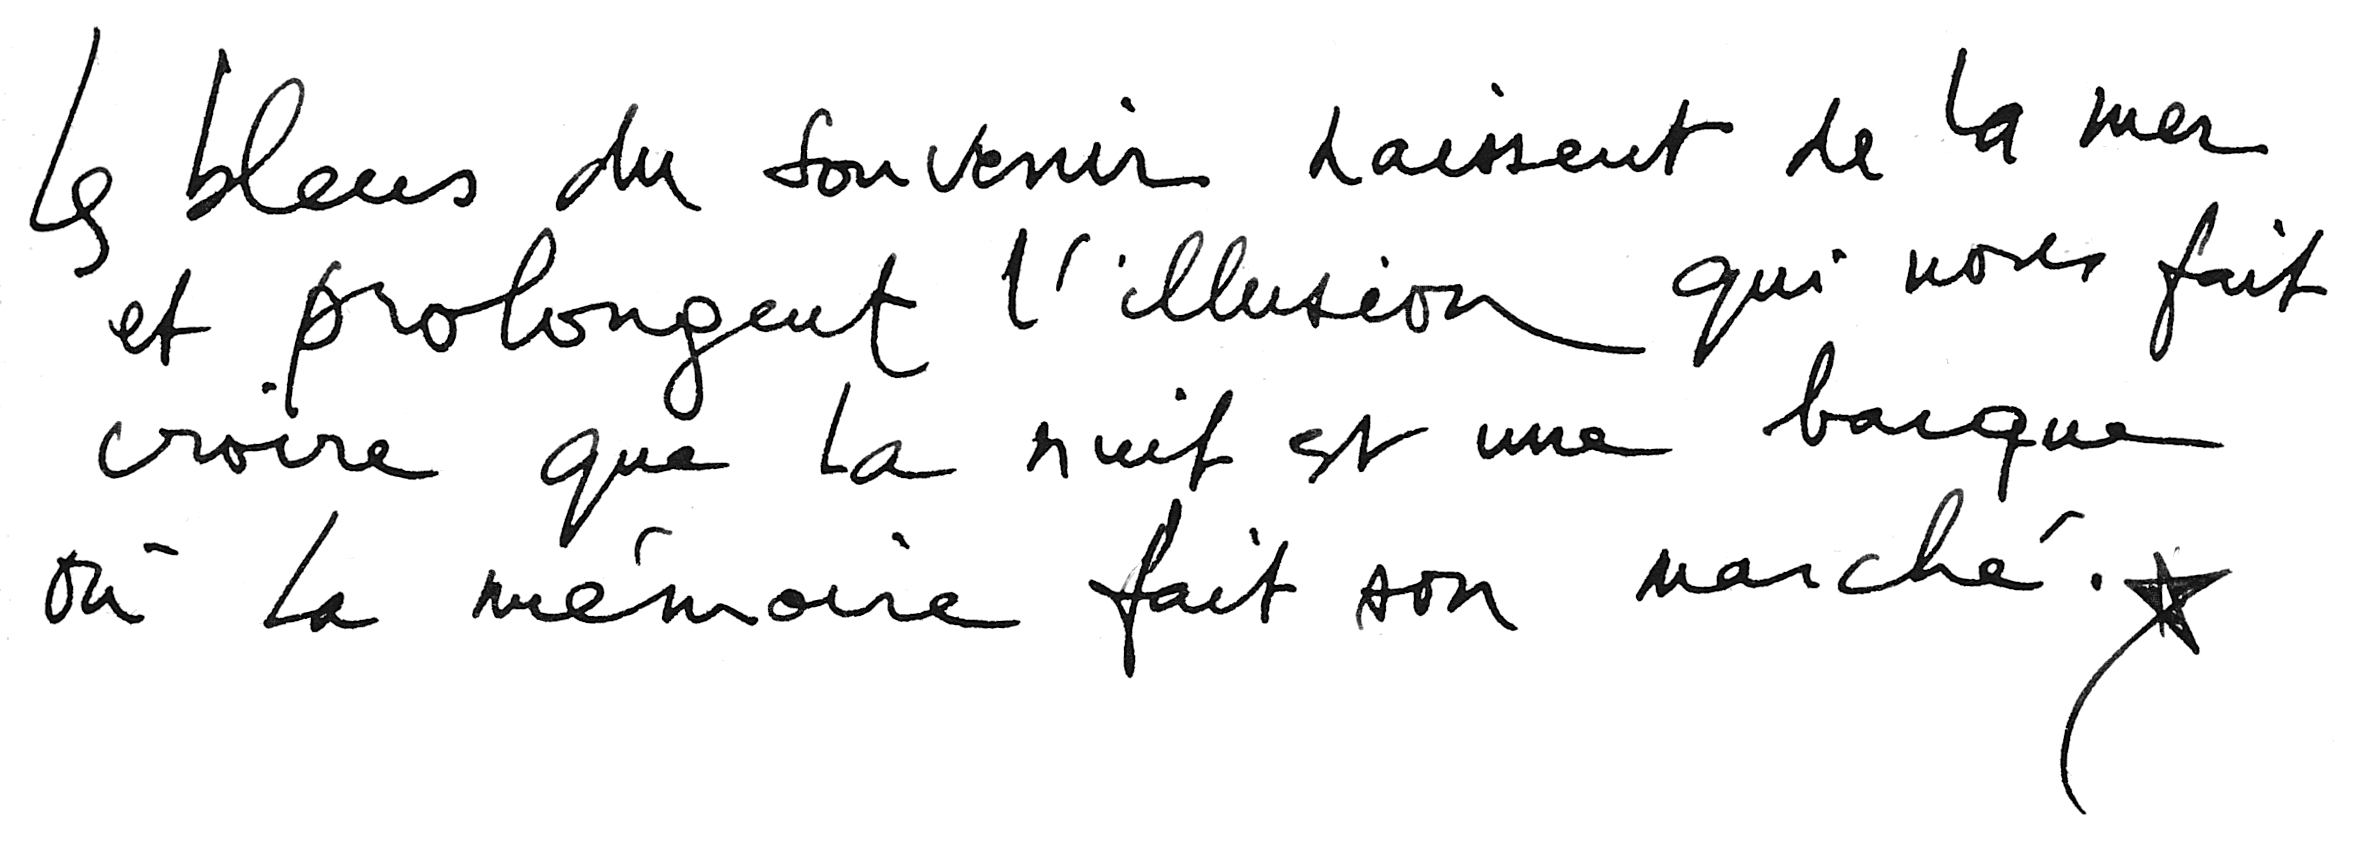 Les bleus du souvenir naissent de la mer
et prolongent l'illusion qui nous fait
croire que la nuit est une barque
où la mémoire fait son marché.